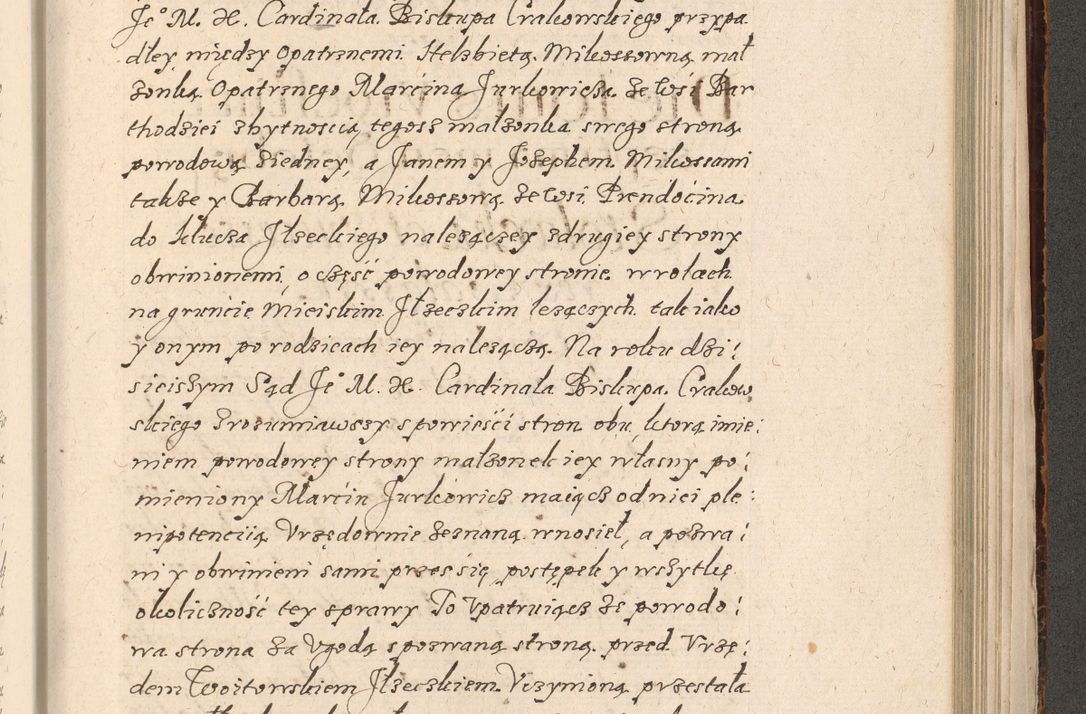 Jeº M. X. Cardinała Biskupa Crakowskiego przypa
dłey między Opatrznemi Helzbietą Mikoszowną mał
żonką Opatrznego Marcina Jurkowicza ze wsi Bar
thodziei zbytnoscią tegosz małżonka swego stroną
powodową ziedney, a Janem y Jozephem Mikossami
także y Barbarą Mikoszową ze wsi Prendocina
do klucza Jłzeckiego należączey zdrugiey strony
obwinionemi, o część powodowey stronie w rolach
na gruncie Mieiskim Jłzeczkim leżączych tak iako
y onym po rodzicach iey należączą. Na roku dzi:
sieiszym Sąd Jeº M. X. Cardinała Biskupa Crakow
skiego zrozumiawszy spowieści stron obu ktorą imie:
niem powodowey strony małżonek iey własny po:
mieniony Marcin Jurkowicz maiącz od niei ple:
nipotenciią Vrzędownie zeznaną wnosieł, a pozwa:
ni y obwinieni sami przes się, postępek y wszytkę
okoliczność tey sprawy To Vpatruiącz że powodo:
wa strona za Vgodą spozwaną stroną przed Vrzę:
dem Woitowskiem Jłzeczkiem Vczynioną przestała